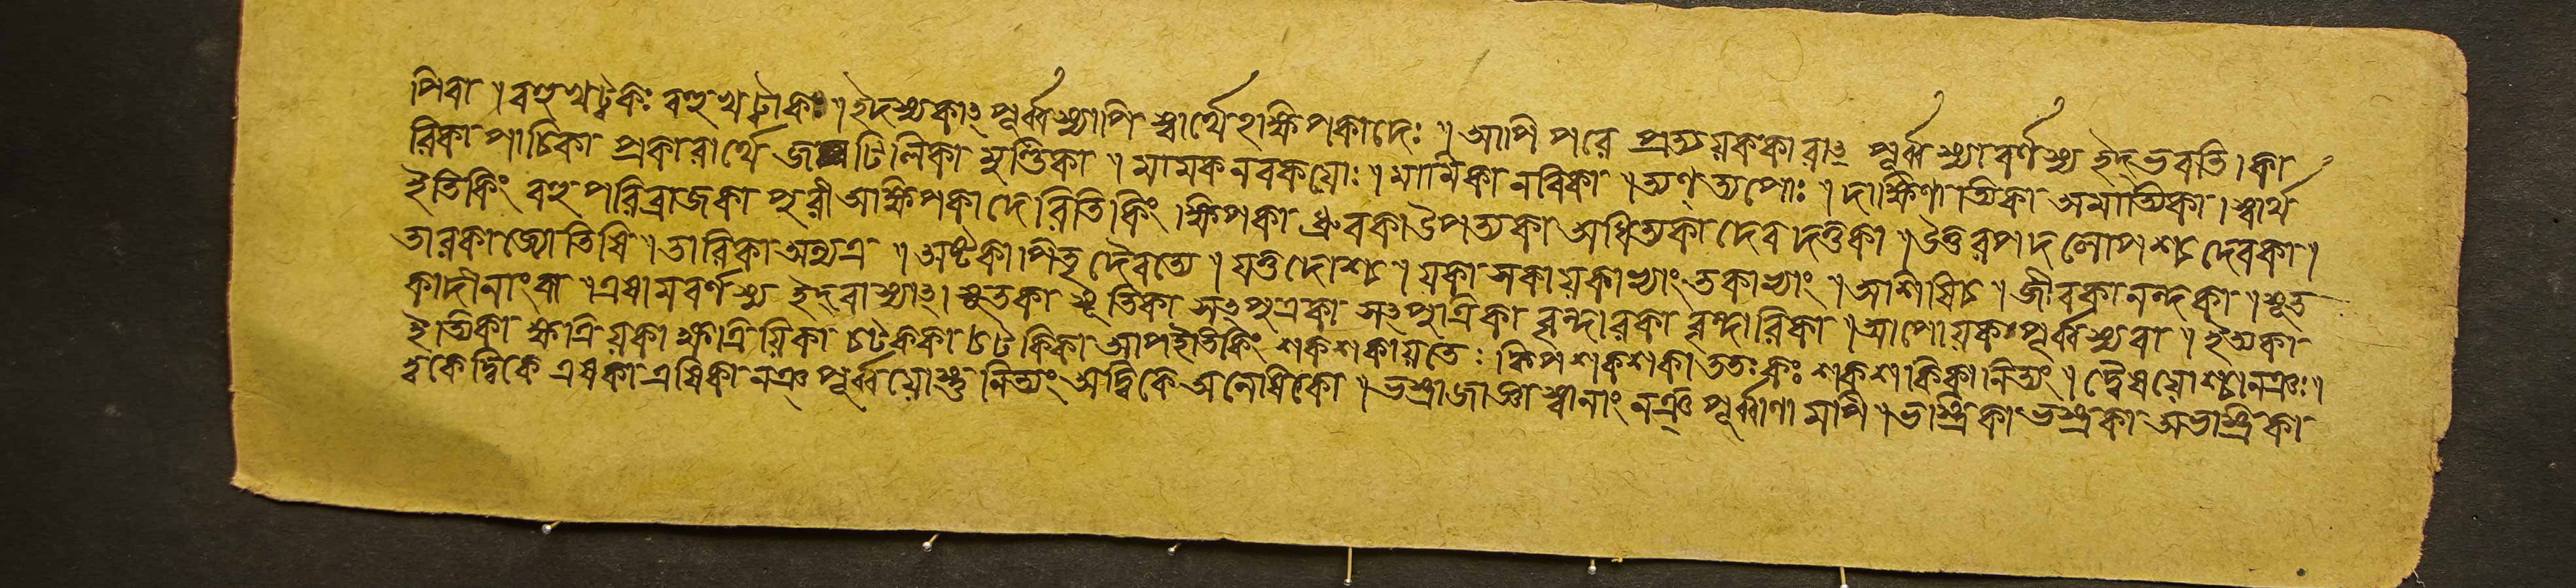 পিবা । বহুখট্বকঃ বহুখট্বাকঃ । ইদস্থ্যকাৎ পূর্ব্বস্থ্যাপি স্বার্থেঽক্ষিপকাদেঃ । আপি পরে প্রত্যয়ককারাৎ পূর্ব্বস্যাবর্ণস্য ইদ্ভবতি । কা
রিকা পাচিকা প্রকারার্থে জটিলিকা মুণ্ডিকা । মামকনবকয়োঃ । মামিকা নবিকা । ত্যণ্ত্যপোঃ । দাক্ষিণাত্যিকা অমাত্যিকা । স্বার্থ
ইতিকিং বহুপরিব্রাজকা পুরী অক্ষিপকাদেরিতিকিং । ক্ষিপকা ধ্রুবকা উপত্যকা অধিত্যকা দেবদত্তকা । উত্তরপদলোপশ্চ দেবকা ।
তারকা জ্যোতিষি । তারিকা অন্যত্র । অষ্টকা পিতৃদৈবত্যে । যত্তদোশ্চ । যকা সকা যকাভ্যাং তকাভ্যাং । আশিষিচ । জীবকা নন্দকা । সূত
কাদীনাং বা । এষামবর্ণস্য ইদ্বাস্যাৎ । সূতকা সূতিকা সৎপুত্রকা সৎপুত্রিকা বৃন্দারকা বৃন্দারিকা । আপোয়কপূর্ব্বস্যবা । ইভ্যকা
ইভ্যিকা ক্ষত্রিয়কা ক্ষত্রিয়িকা চটককা চটকিকা আপইতিকিং শকশকায়তেঃ ক্বিপ শকশকা ততঃকঃ শকশকিকা নিত্যং । দ্বৈষয়োশ্চানঞঃ ।
দ্বকে দ্বিকে এষকা এষিকা নঞ্পূর্ব্বয়োস্তু নিত্যং অদ্বিকে অনেষিকা । ভস্ত্রাজাজ্ঞাস্বানাং নঞ্পূর্ব্বাণামপি । ভস্ত্রিকা ভস্ত্রকা অভস্ত্রিকা